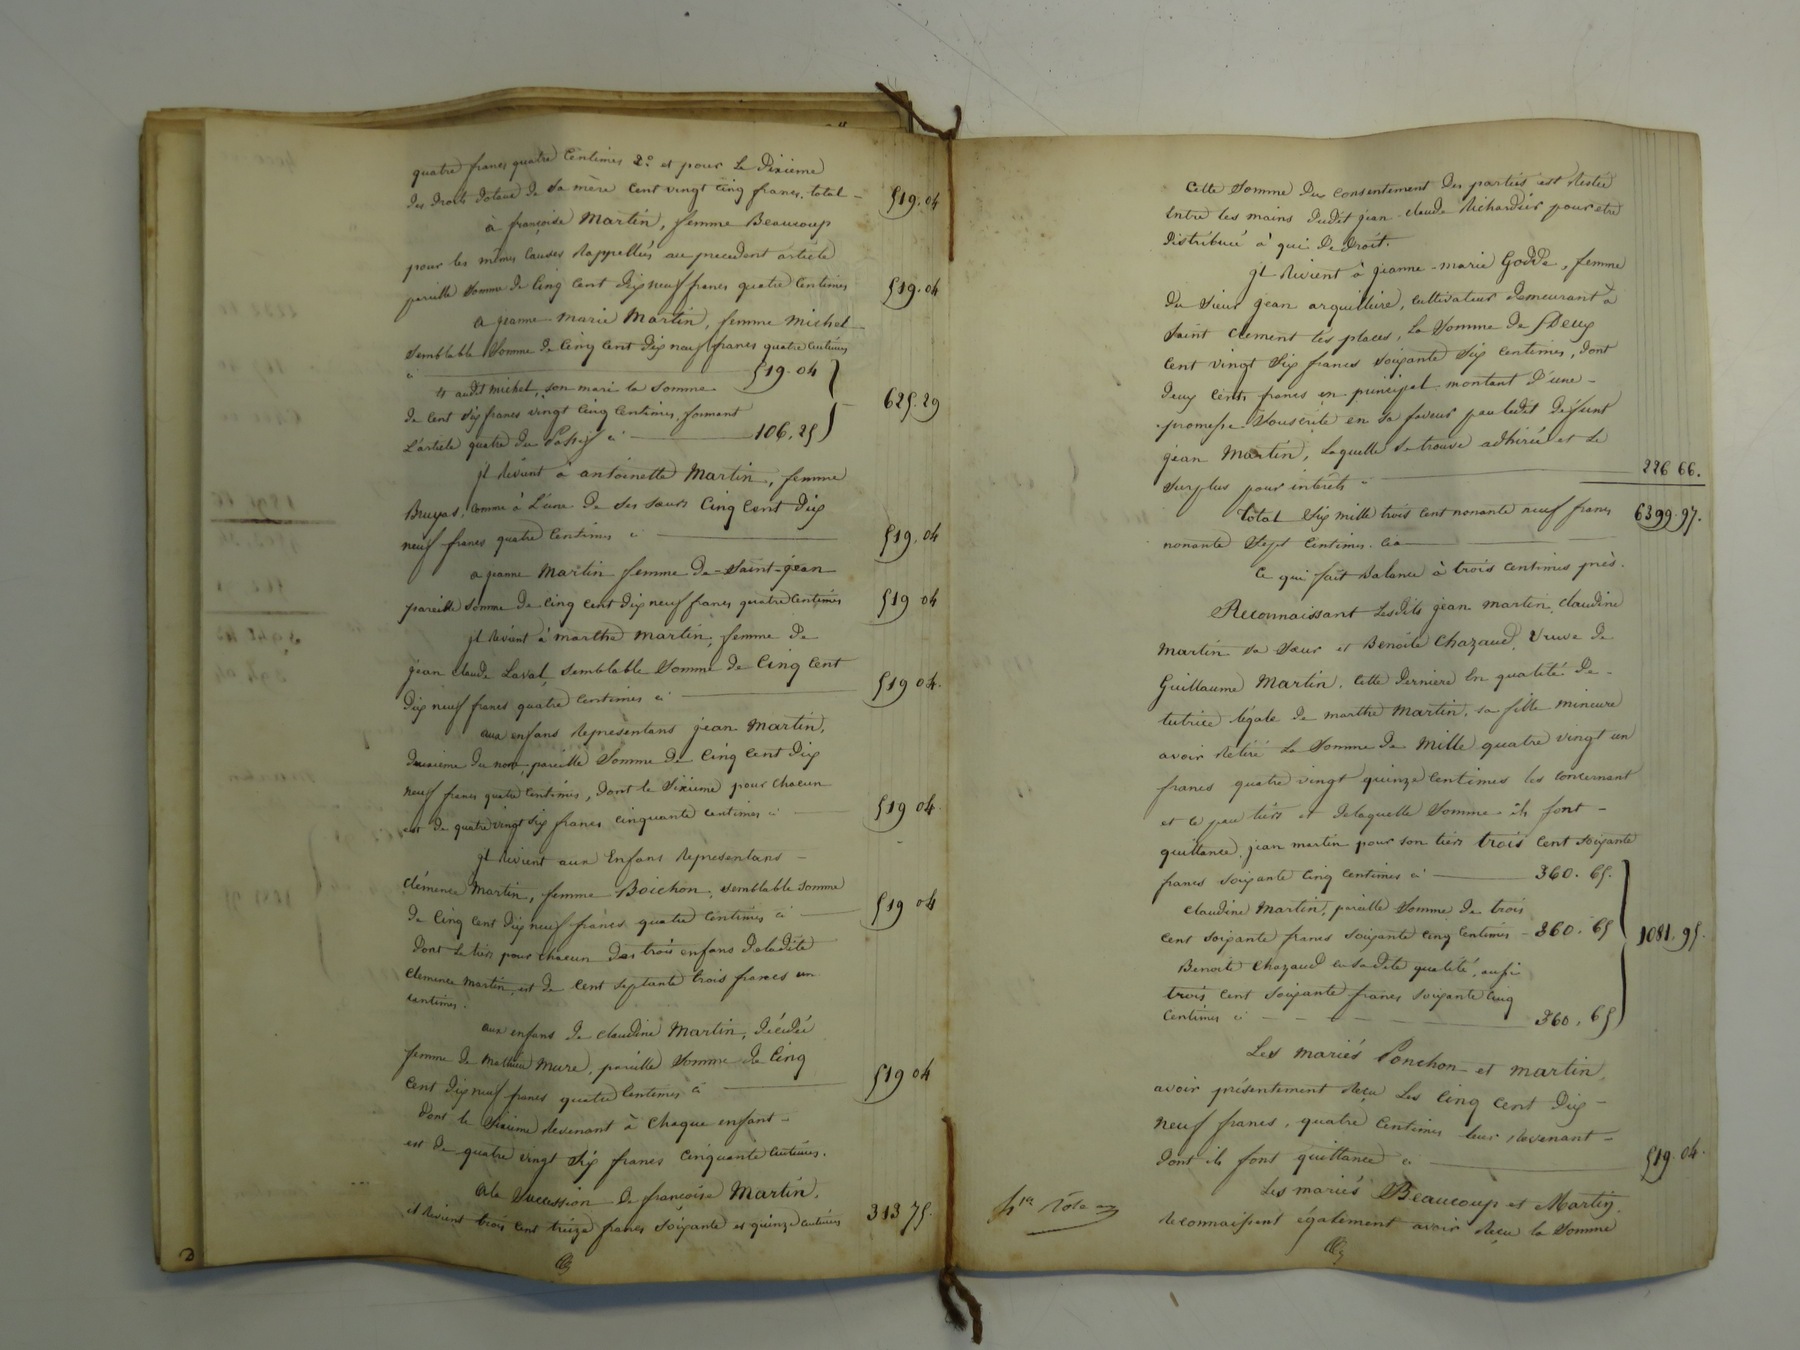 quatre francs quatre Centimes 2° et pour le Dixieme
des droits dotaux de sa mère cent vingt cinq francs. total — 519.04
à françoise Martin, femme Beaucoup
pour les mêmes causes Rappellées au precedent article
pareille somme de Cinq cent dix neuf francs quatre centimes 519.04
a jeanne marie Martin, femme michel
semblable somme de Cinq cent dix neuf francs quatre centimes
ci 519.04
et audit michel, son mari la somme
de cent six francs vingt Cinq Centimes, formant 625.29
L'article quatre du Passif ci — 106.25
jl Revient à antoinette Martin, femme
Bruyas, comme à L'une de ses sœurs Cinq Cent dix
neuf francs quatre Centimes ci — 519.04
a jeanne Martin femme de Saint-jean
pareille somme de Cinq cent dix neuf francs quatre Centimes 519 04
jl Revient à marthe martin, femme de
jean claude Laval, semblable somme de Cinq Cent
dix neuf francs quatre Centimes ci — 519 04.
aux enfans Représentans jean Martin,
deuxieme du nom, pareille Somme de Cinq Cent dix
neuf francs quatre Centimes, dont le Sixieme pour chacun
est de quatre vingt six francs cinquante centimes ci — 519 04
jl Revient aux Enfans Représentans
clémence Martin, femme Boichon, semblable somme
de Cinq Cent dix neuf francs quatre Centimes ci — 519 04
dont le tiers pour chacun des trois enfans deladite
clemence martin, est de cent septante trois francs un
centimes.
aux enfans de claudine Martin, décédée
femme de Mathieu Mure, pareille Somme de Cinq
Cent dix neuf francs quatre Centimes ci — 519 04
dont le Sixieme Revenant à Chaque enfant
est de quatre vingt Six francs Cinquante Centimes.
a la Succession de françoise Martin,
il Revient trois cent treize francs Soixante et quinze centimes 313 75.
Cette Somme du consentement des parties est Restée
Entre les mains dudit jean-claude Richardier pour etre
distribuée à qui de droit.
jl Revient à jeanne-marie Godde, femme
du sieur jean arquilliere, cultivateur demeurant à
Saint Clement lès places, la Somme de Deux
cent vingt Six francs soixante Six centimes, dont
deux cents francs en principal montant d'une
promesse Souscrite en sa faveur par ledit défunt
jean Martin, Laquelle se trouve adhirée et le
surplus pour intérêts ci — 226 66.
total Six mille trois cent nonante neuf francs 6399.97.
nonante Sept Centimes. Ci
ce qui fait Balance à trois centimes près.
Reconnaissant Lesdits jean martin, claudine
Martin sa sœur et Benoite Chazaud, veuve de
Guillaume Martin, Cette derniere En qualité de
tutrice légale de marthe Martin, sa fille mineure
avoir Retiré la somme de Mille quatre vingt un
francs quatre vingt quinze Centimes les concernant
et ce par tiers et delaquelle Somme ils font
quittance, jean martin pour son tiers trois cent soixante
francs soixante cinq centimes ci — 360.65.
claudine Martin, pareille Somme de trois
cent soixante francs soixante cinq Centimes 360.65 1081.95.
Benoite Chazaud en sa dite qualité, aussi
trois cent Soixante francs soixante cinq
Centimes ci — 360.65
Les mariés Ponchon et martin,
avoir présentement Reçu Les Cinq Cent dix
neuf francs, quatre Centimes leur Revenant
dont ils font quittance ci — 519.04.
Les mariés Beaucoup et Martin
Reconnaissent également avoir Reçu la Somme